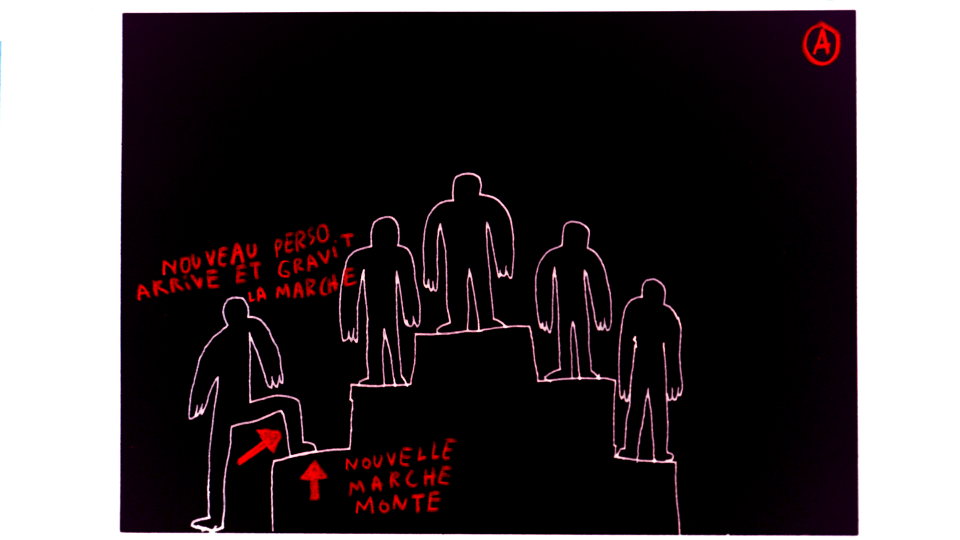 A
NOUVEAU PERSO
ARRIVE ET GRAVIT
LA MARCHE
NOUVELLE
MARCHE
MONTE